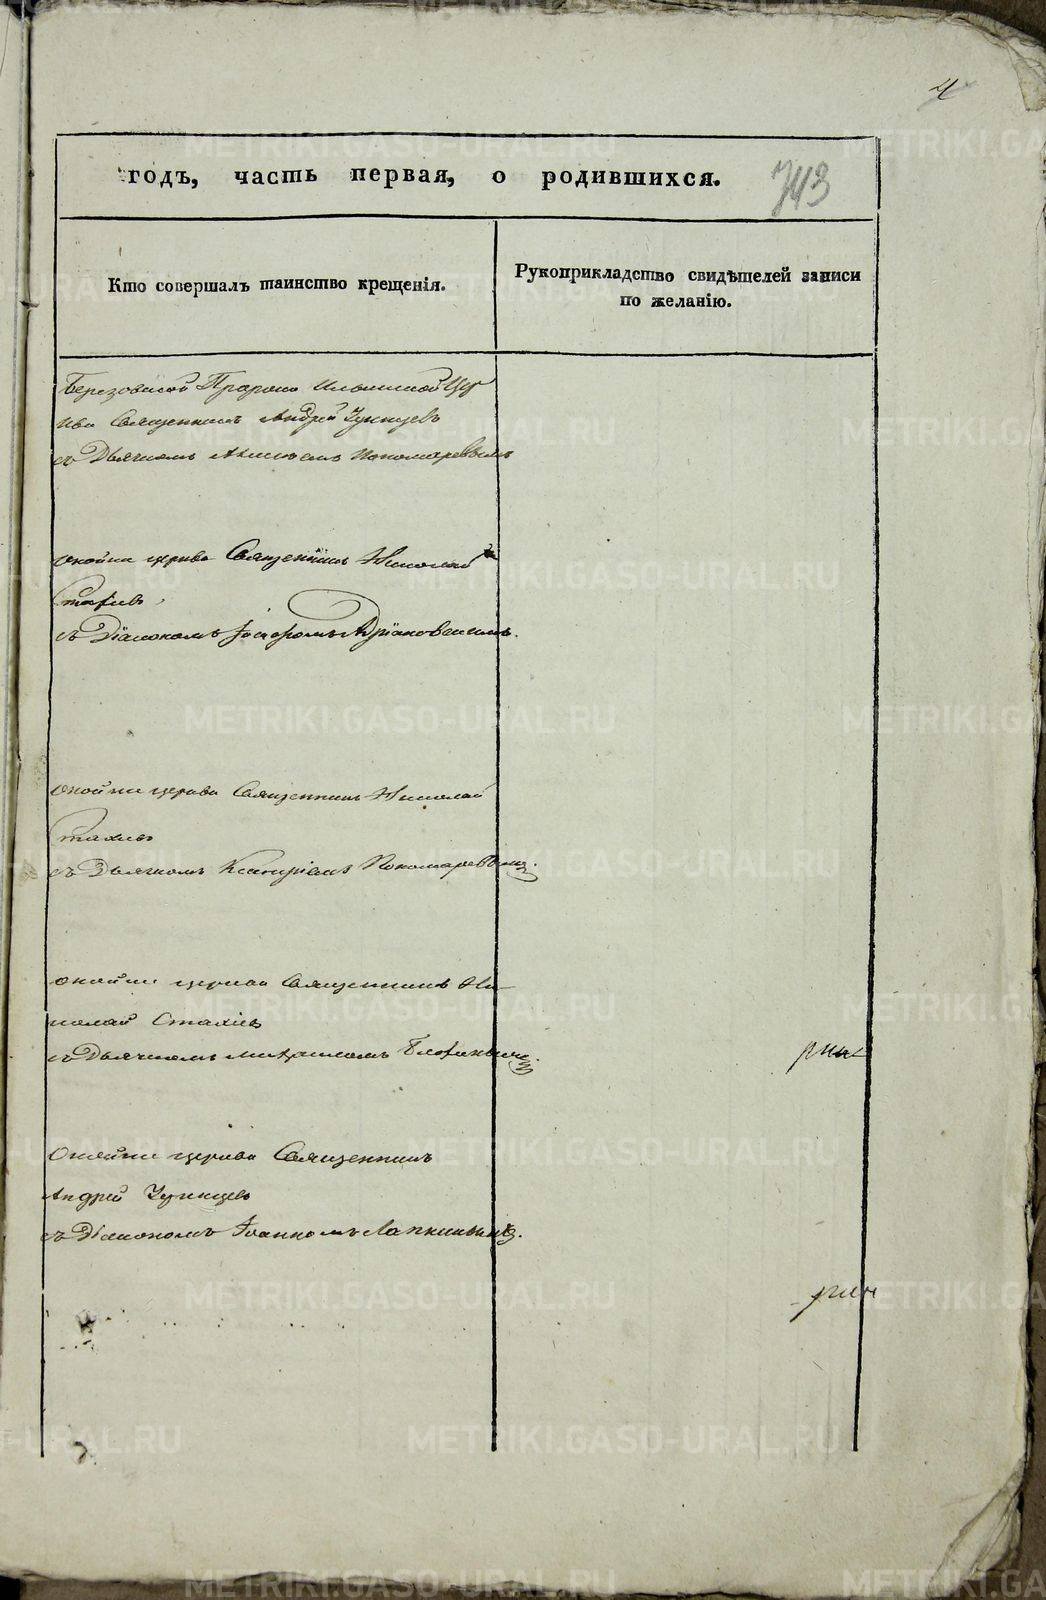 4
годъ, часть первая, о родившихся.
743
Кто совершалъ таинство крещенія.
Рукоприкладство свидѣтелей записи
по желанію.
Березовской Пророко Ильинской Цер
кви Священникъ Андрей
съ Дьячкомъ Алексѣемъ Пономаревымъ
оной же церкви Священникъ Николай
Стахіевъ
съ Діакономъ Адріановскимъ.
оной же церкви Священникъ Николай
Стахіевъ
съ Дьячкомъ Пономаревымъ.
оной же церкви Священникъ Ни
колай Стахіевъ
съ Дьячкомъ Михаиломъ
Оной же церкви Священникъ
Андрей
съ Діакономъ Іоанномъ Лапкинымъ.
METRIKI.GASO-URAL.RU